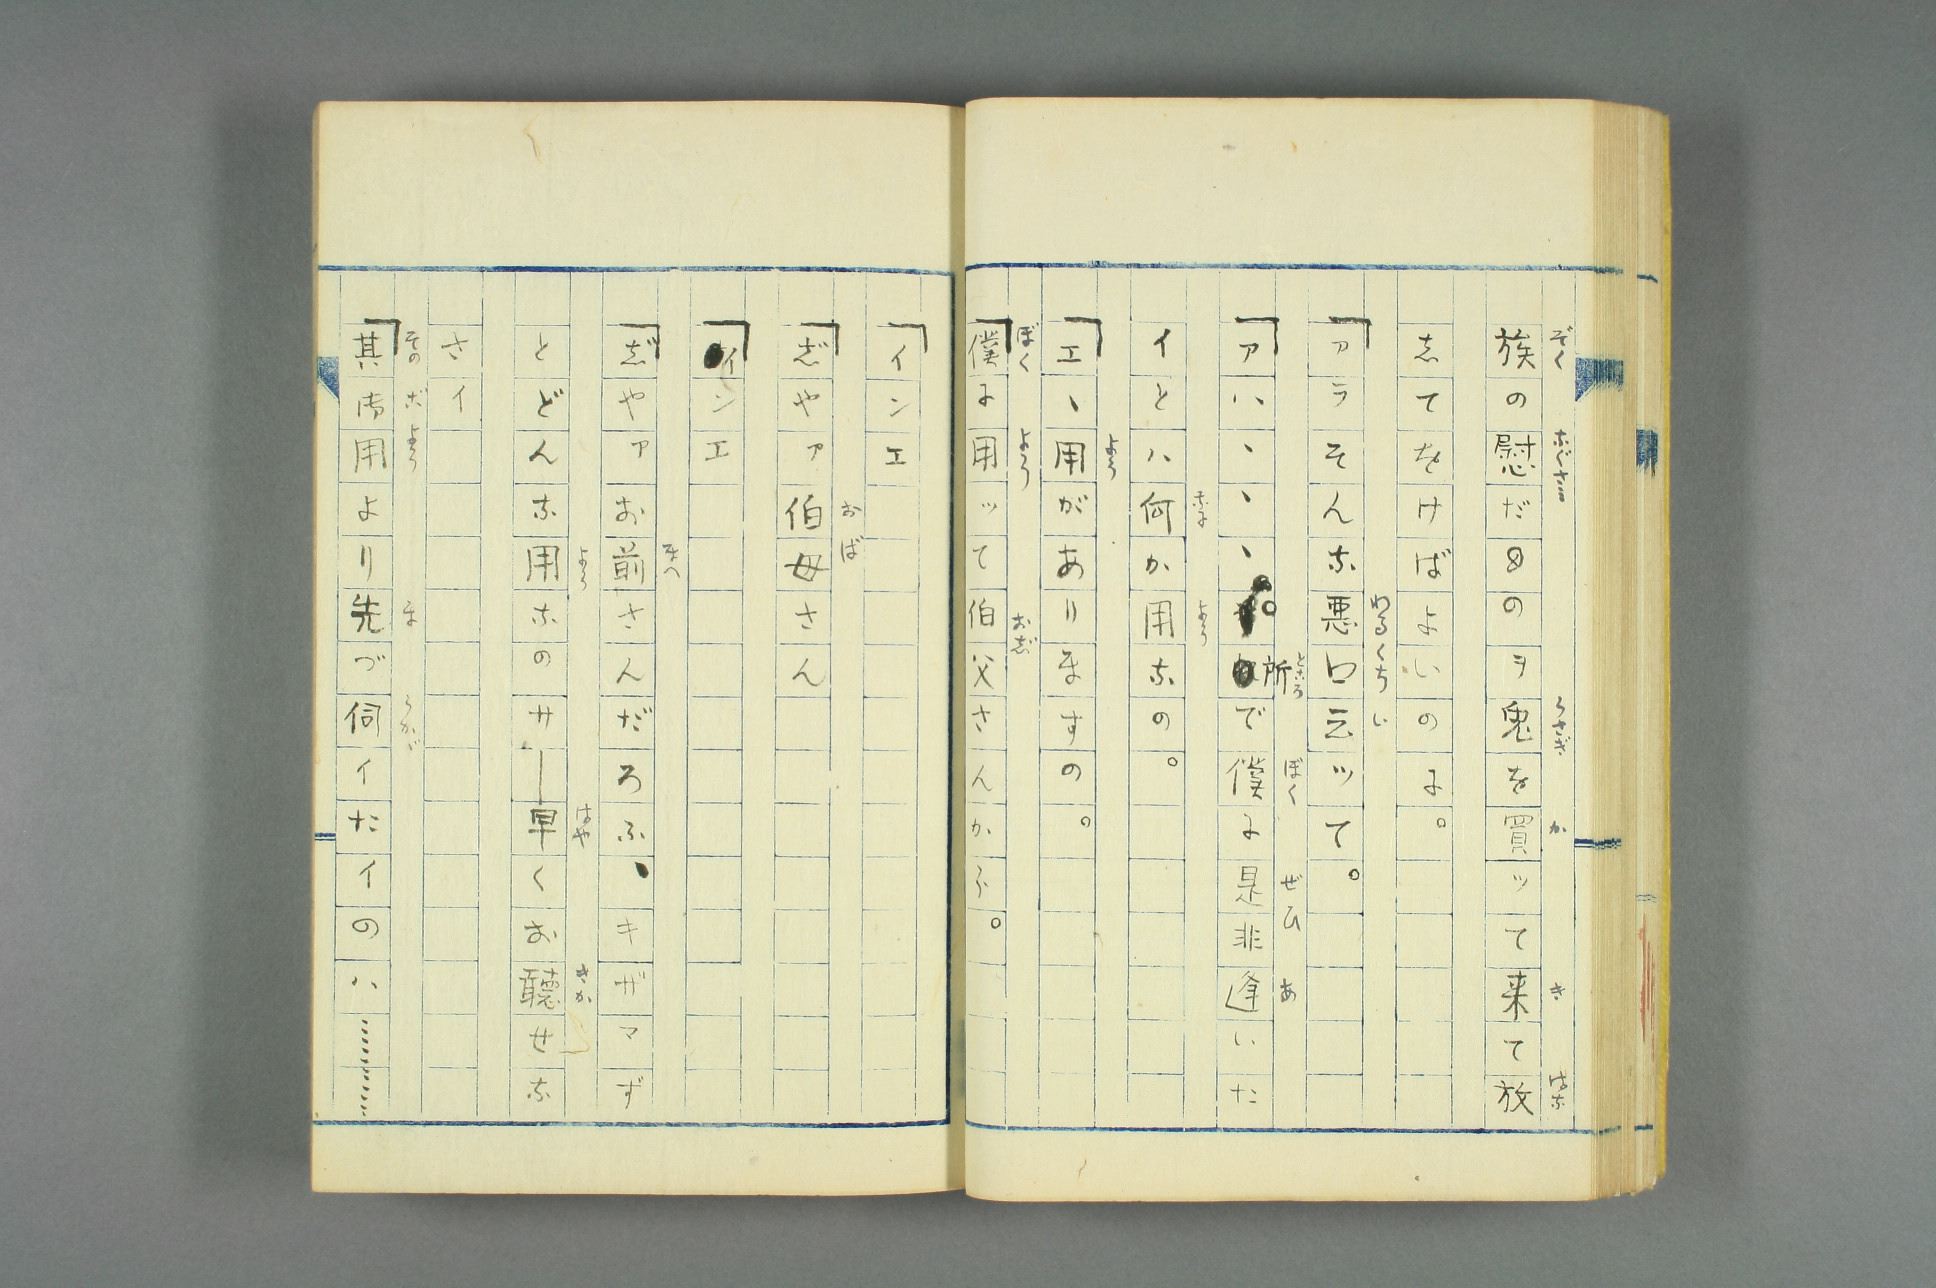 族の慰だめのヲ兎を買ッて来て放
志てをけばよいのよ。
「アラそんな悪口云ッて。
「アハヽヽヽ。所で僕に是非逢いた
イとハ何か用なの。
「エヽ用がありますの。
「僕に用ッて伯父さんかへ。
「インエ
「志゛やア伯母さん
「インエ
「志゛やアお前さんだろふ、キザマず
とどんな用なのサー早くお聴せな
さイ
「其御用より先づ伺イたイのハ…………